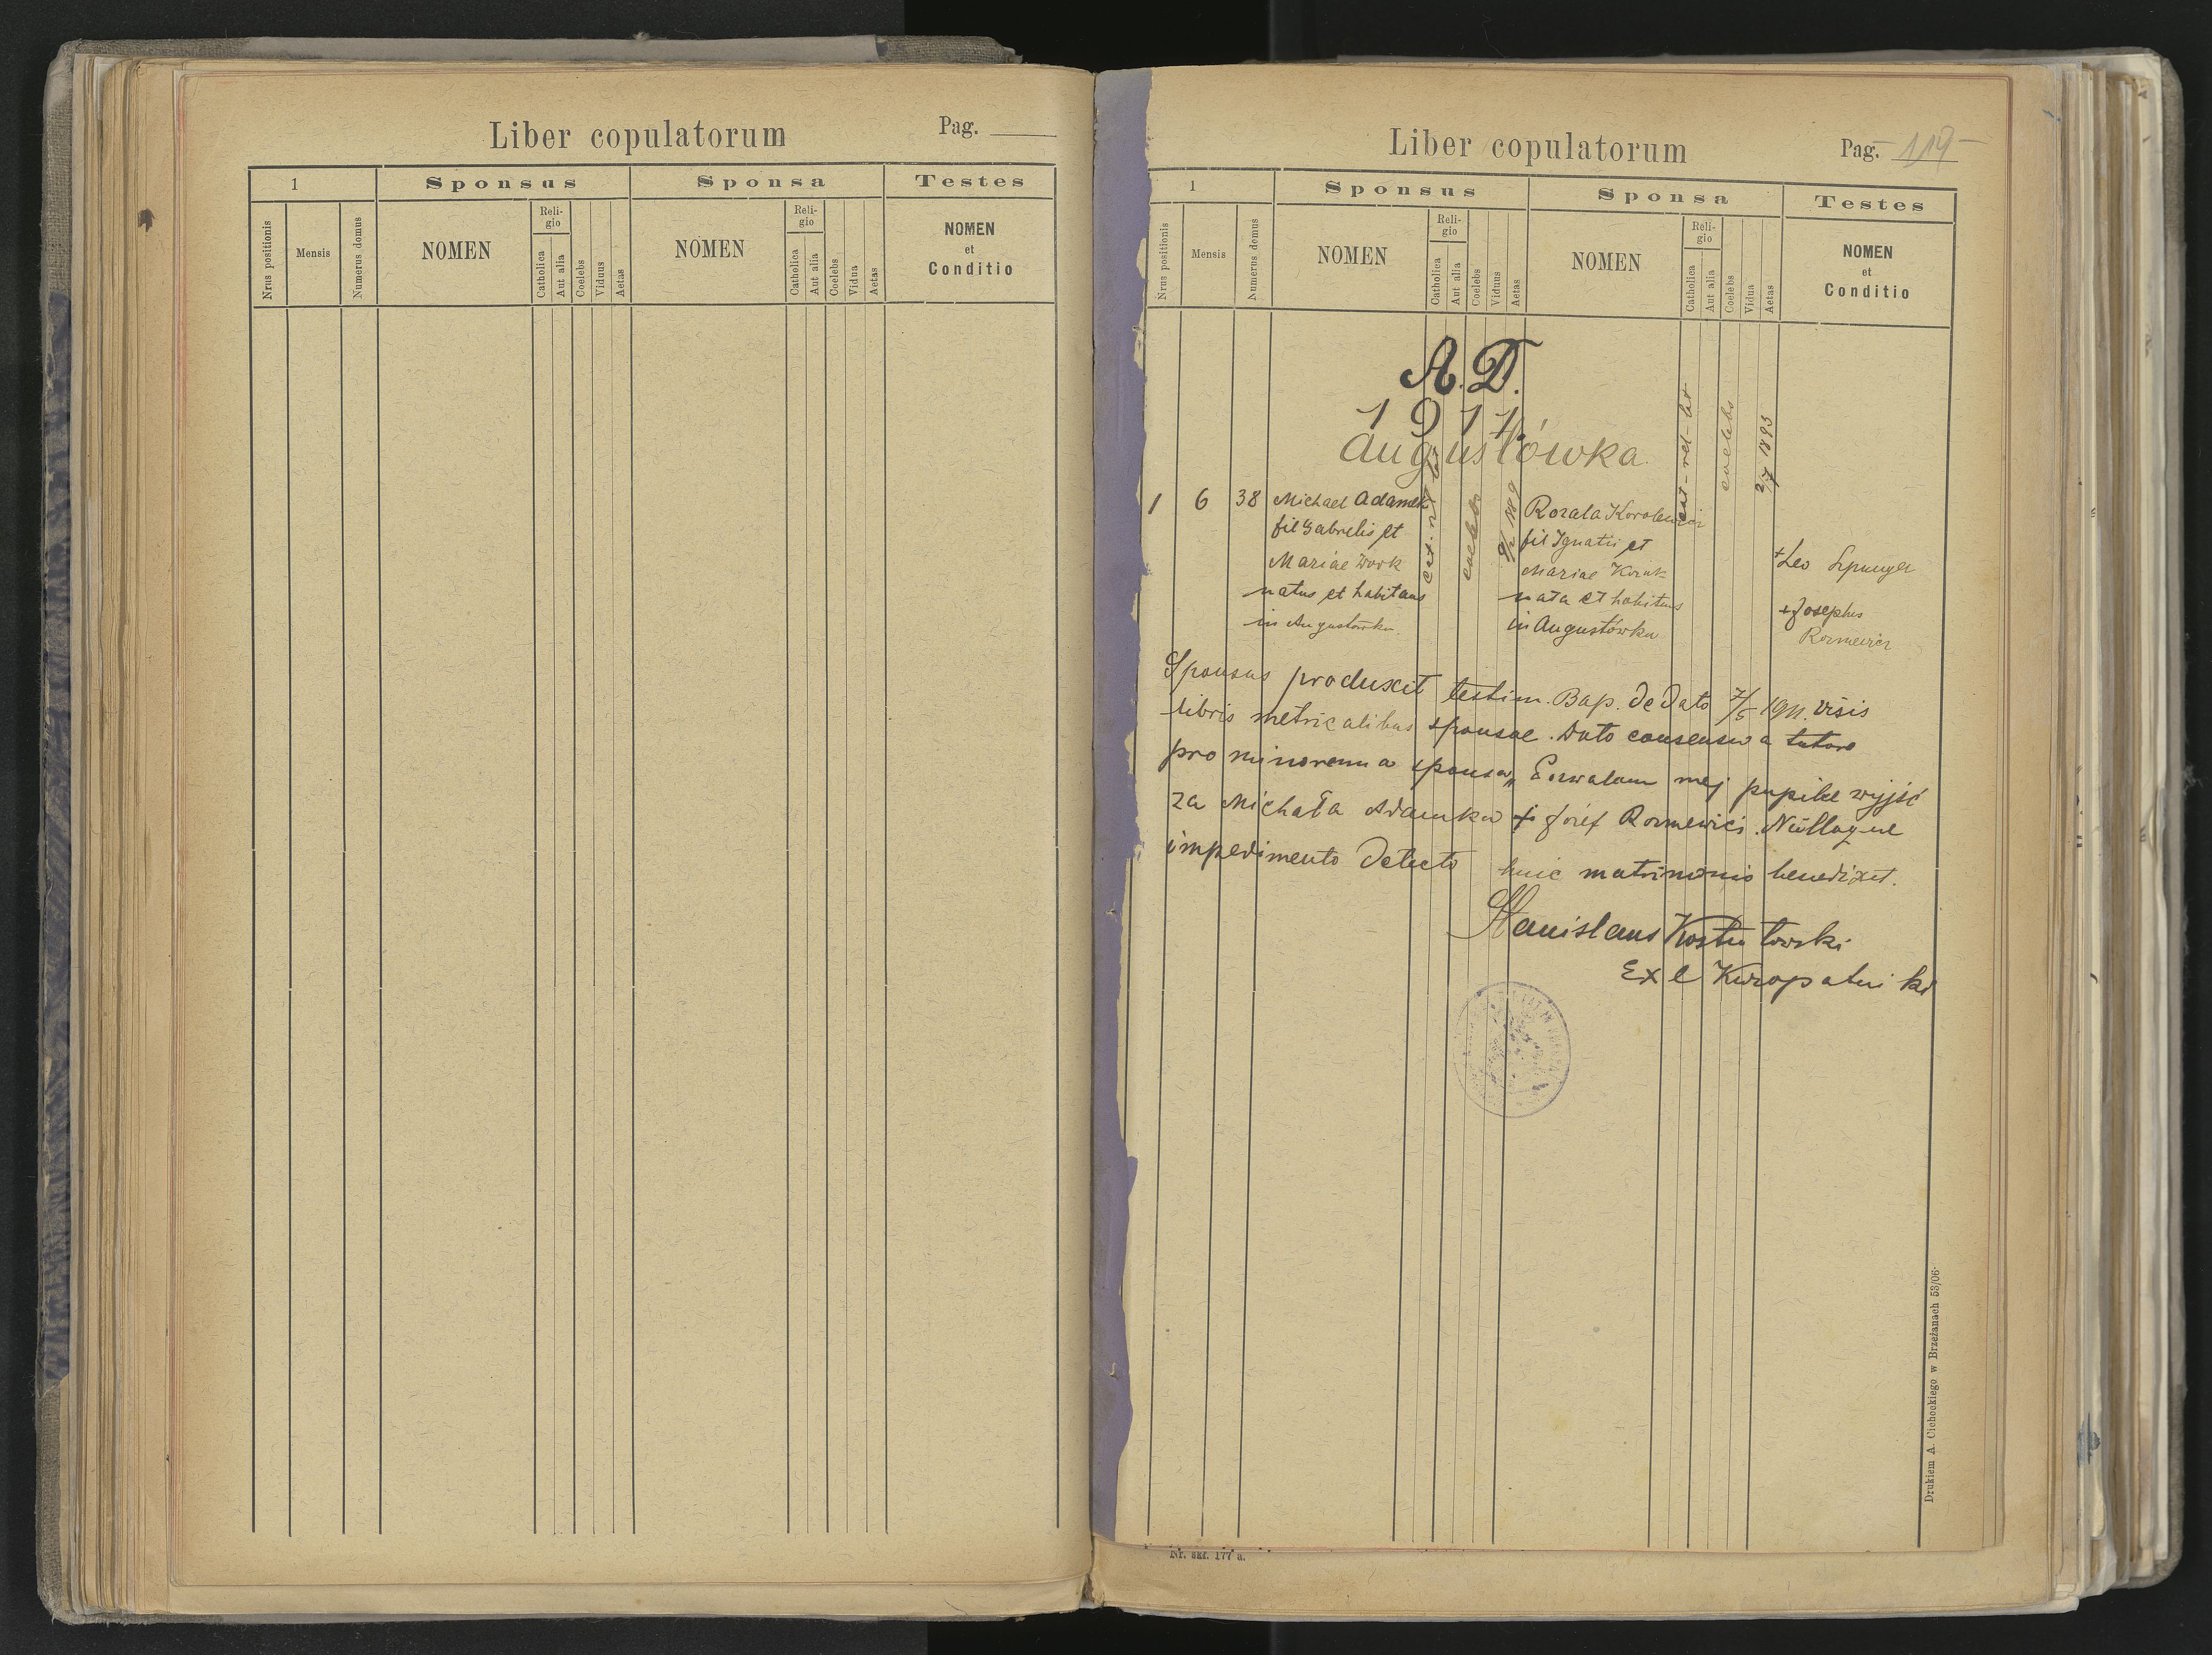 Liber copulatorum
Pag.
1
Sponsus
Sponsa
Testes
Nrus positionis
Mensis
Numerus domus
NOMEN
Religio
Catholica
Aut alia
Coelebs
Viduus
Aetas
NOMEN
Religio
Catholica
Aut alia
Coelebs
Vidua
Aetas
NOMEN
et
Conditio
Liber copulatorum
Pag. 119
1
Sponsus
Sponsa
Testes
Nrus positionis
Mensis
Numerus domus
NOMEN
Religio
Catholica
Aut alia
Coelebs
Viduus
Aetas
NOMEN
Religio
Catholica
Aut alia
Coelebs
Vidua
Aetas
NOMEN
et
Conditio
A. D.
1911
Augustówka
1 6 38 Michael Adamek
fil Gabrielis et
Mariae
natus et habitans
in Augustówka
coelebs
Rozala
fil Ignatii et
Mariae
nata et habitans
in Augustówka
coelebs
1893
+ Leo
+ Josephus
Rozmewicz
Sponsus produxit testim. Bap. de dato 7/5 1911. visis
libris metricalibus sponsae. Dato consensu a tutore
pro minorenna sponsa, Zezwalam mej pupilce wyjść
za Michała Adamka + Józef Rozmewicz. Nulloque
impedimento detecto huic matrimonio benedixit.
Stanislaus
Ex l Kuropatniki
Drukiem A. Cichockiego w Brzeżanach 53/06.
Nr. skr. 177 a.